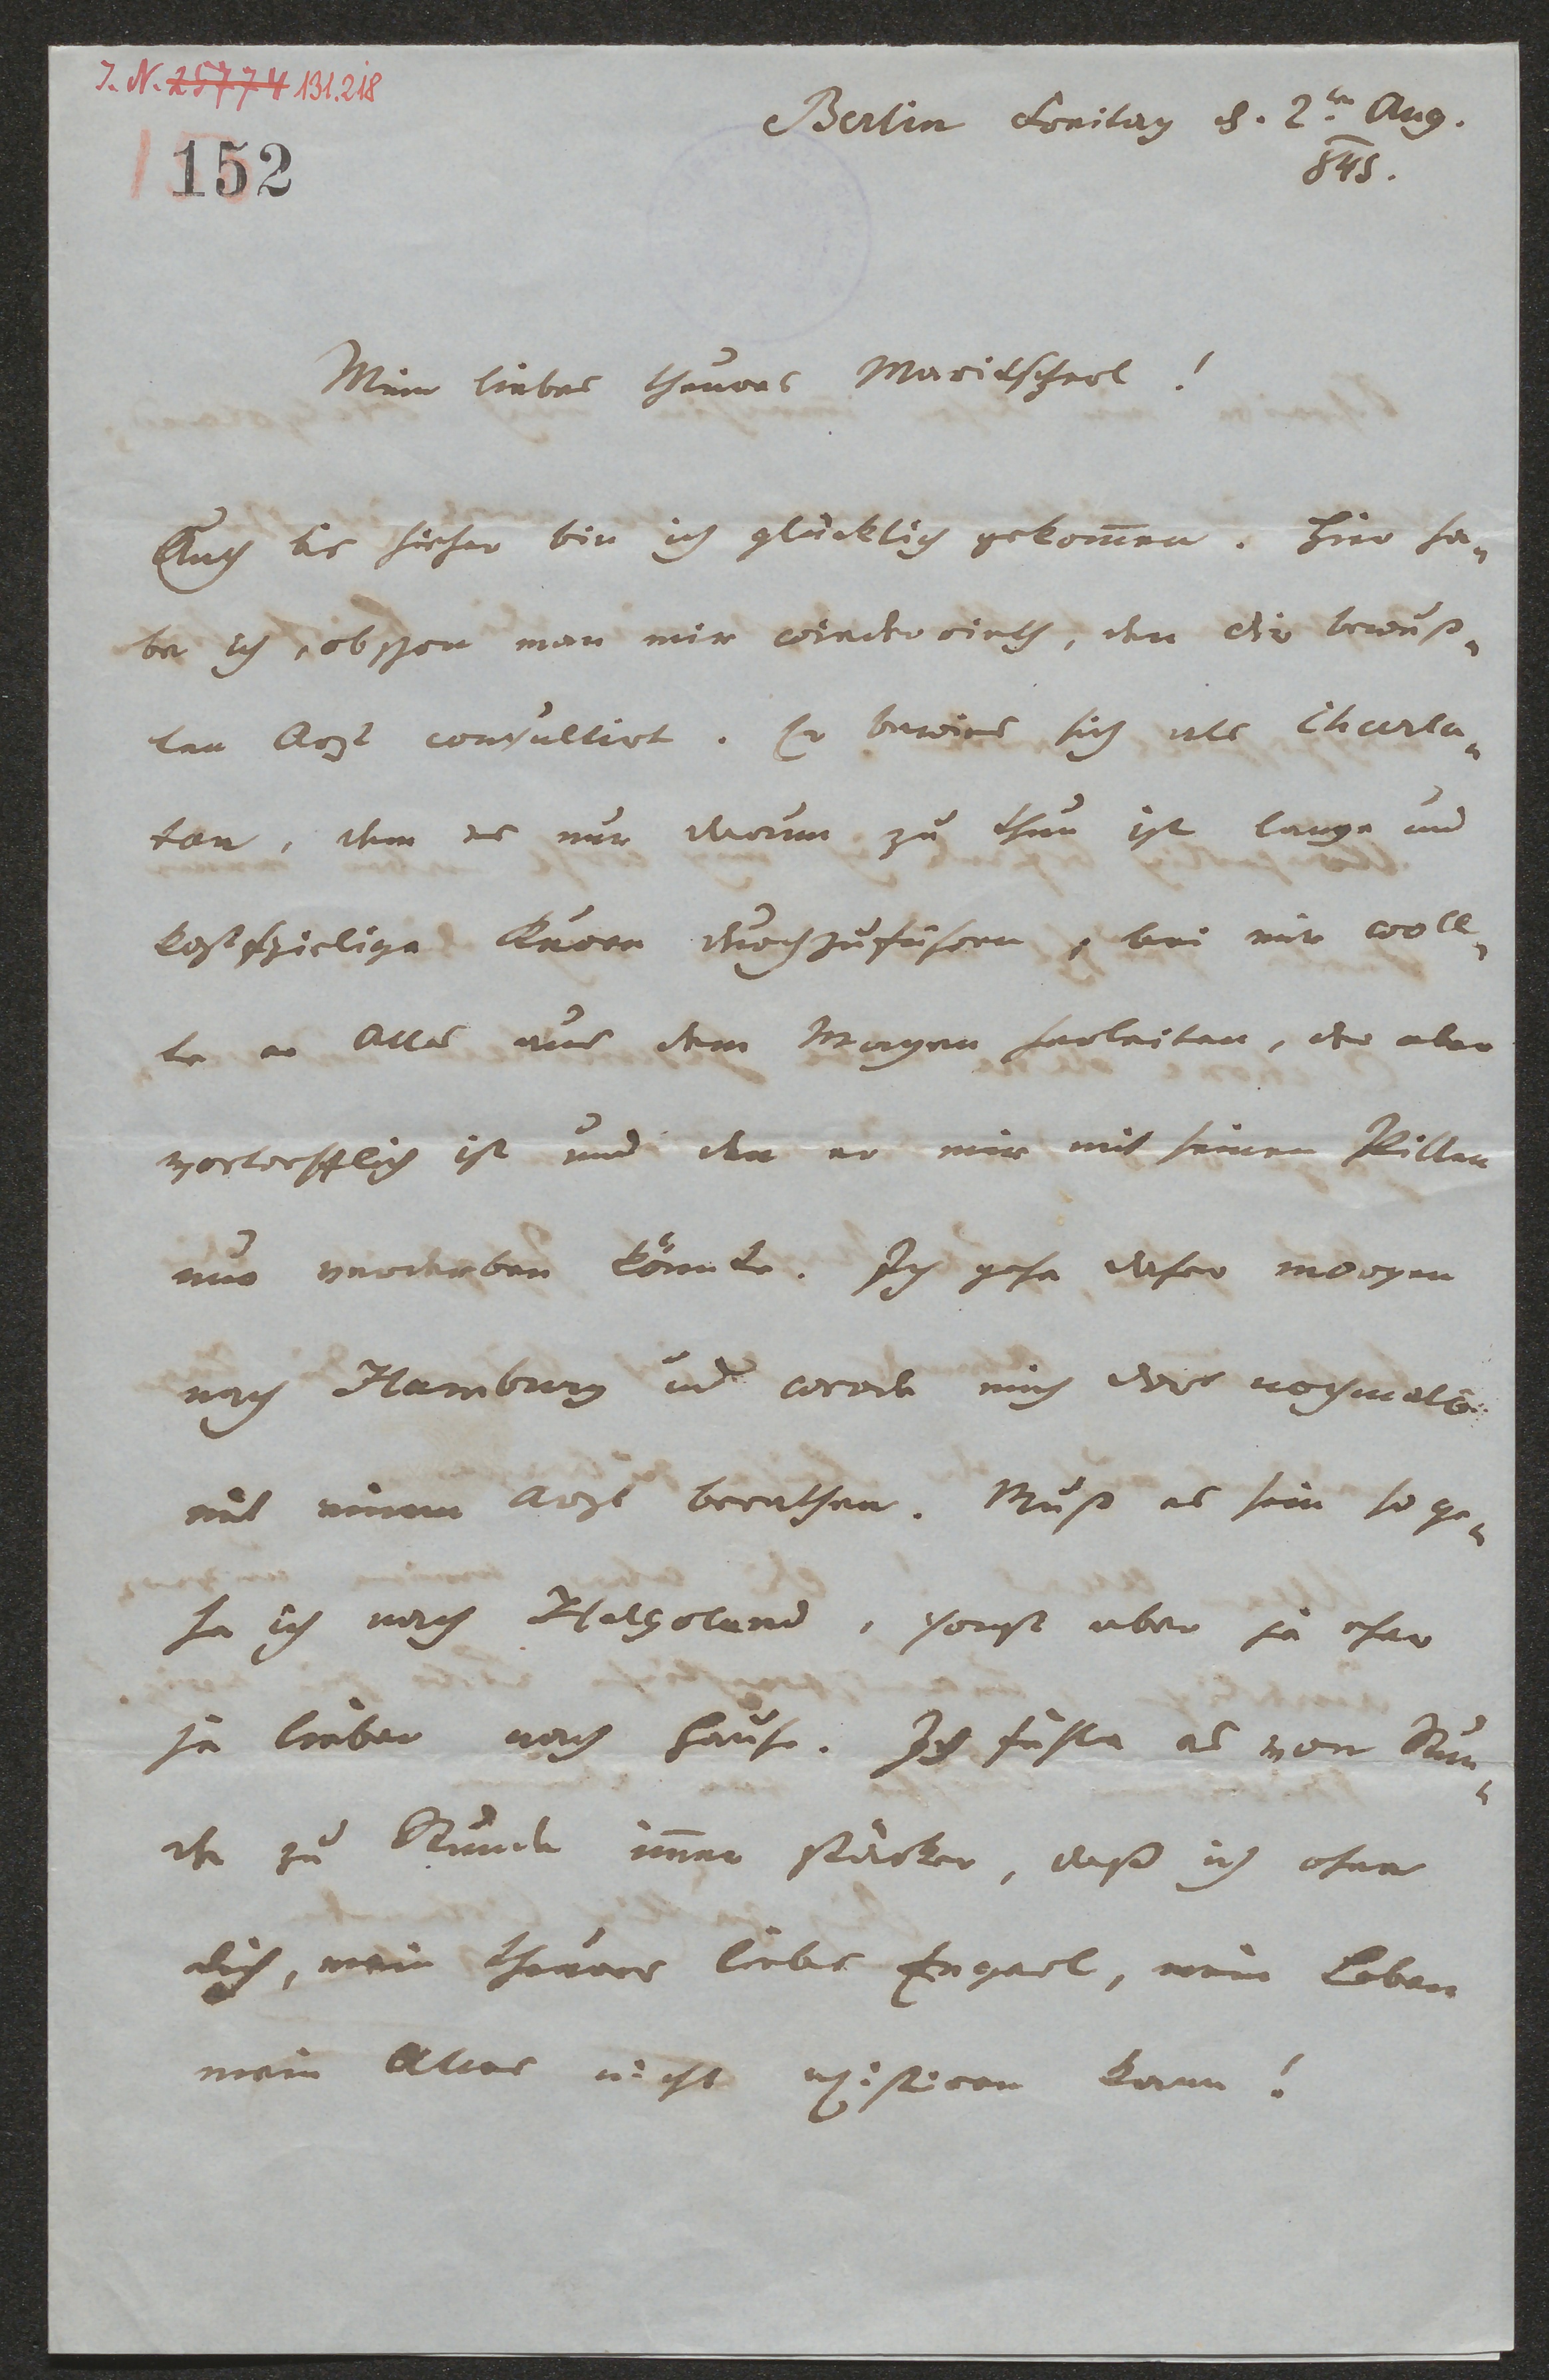 I. N. 25774 131.218
152
Berlin Freitag d. 2ten Aug.
845.
Mein liebes theures Maridscherl!
Auch bis hieher bin ich glücklich gekom̄en. Hier ha„
be ich, obschon man mir wiederrieth, den dir bewuß„
ten Arzt consultirt. Er bewies sich als Charla„
tan, dem es nur darum zu thun ist lange und
kostspielige Kuren durchzuführen, bei mir woll„
te er Alles aus dem Magen herleiten, der aber
vortrefflich ist und den er mir mit seinen Pillen
nur verderben könnte. Ich gehe daher morgen
nach Hamburg und werde mich dort nochmals
mit einem Arzt berathen. Muß es sein so ge„
he ich nach Helgoland, sonst aber je eher
je lieber nach Hause. Ich fühle es von Stun„
de zu Stunde im̄er stärker, daß ich ohne
dich, mein theures liebes Engerl, mein Leben
mein Alles nicht existiren kann!